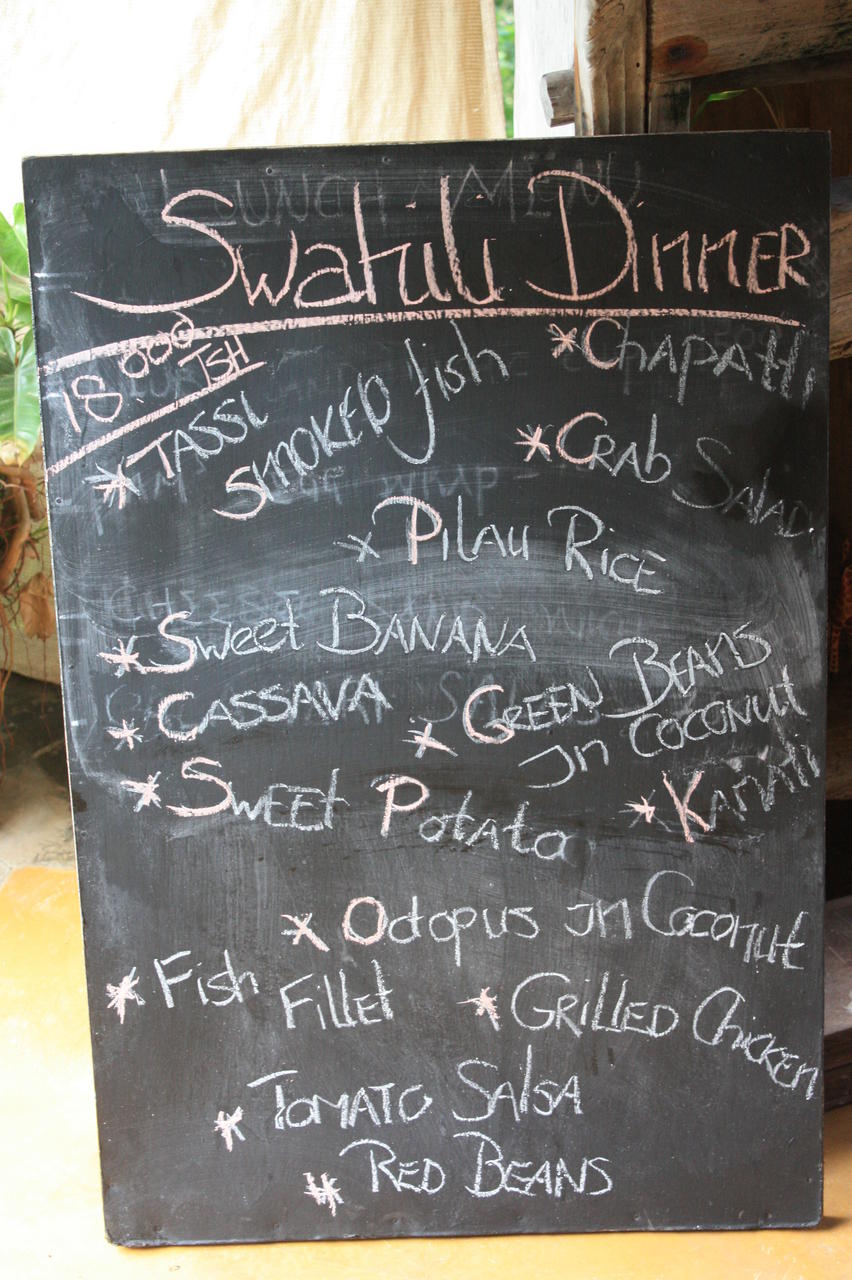 LUNCH MENU
Swahili Dinner
18000 TSH
* Chapatti
* TASSI
SMOKED fish
* CRab Salad
* Pilau Rice
* Sweet BANANA
* CASSAVA
* GREEN BEANS
In COCONUt
* SWEEt Potato
* KAMATI
* Octopus In Coconut
* Fish Fillet
* GRilled Chicken
* TOMATO SAlSA
* RED BEANS